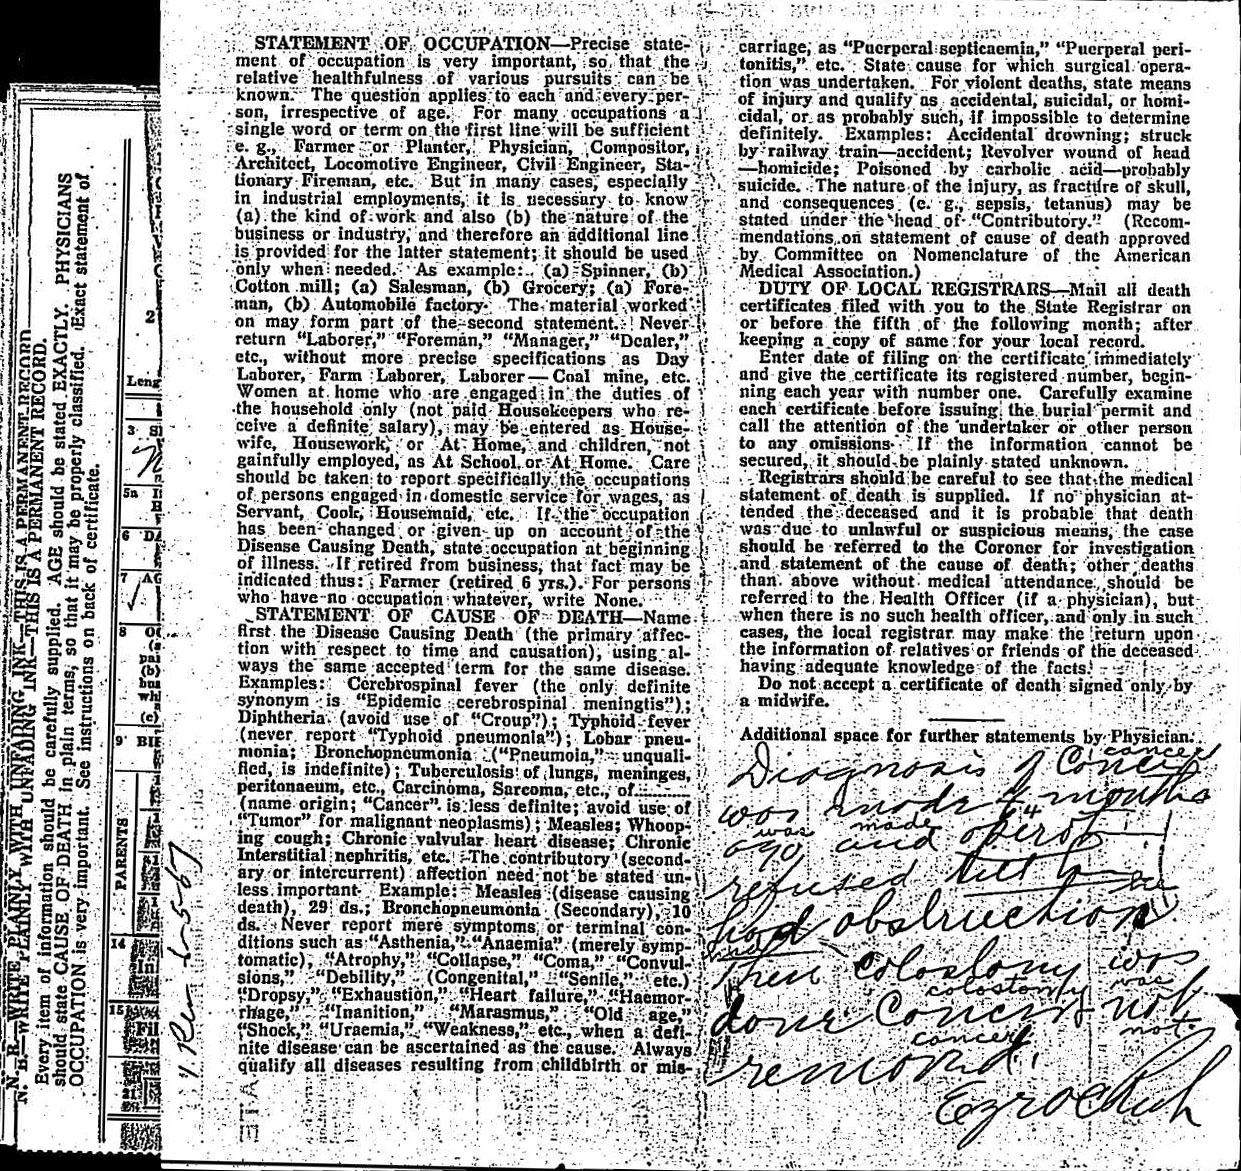 N. B.—WRITE PLAINLY WITH UNFADING INK—THIS IS A PERMANENT RECORD.
Every item of information should be carefully supplied. AGE should be stated EXACTLY. PHYSICIANS
should state CAUSE OF DEATH in plain terms, so that it may be properly classified. Exact statement of
OCCUPATION is very important. See instructions on back of certificate.
2
Leng
3 SI
5a
6 DA
7 AG
8
(b)
(c)
9 BI
PARENTS
14
15
Fil
21
STATEMENT OF OCCUPATION—Precise state-
ment of occupation is very important, so that the
relative healthfulness of various pursuits can be
known. The question applies to each and every per-
son, irrespective of age. For many occupations a
single word or term on the first line will be sufficient
e. g., Farmer or Planter, Physician, Compositor,
Architect, Locomotive Engineer, Civil Engineer, Sta-
tionary Fireman, etc. But in many cases, especially
in industrial employments, it is necessary to know
(a) the kind of work and also (b) the nature of the
business or industry, and therefore an additional line
is provided for the latter statement; it should be used
only when needed. As example: (a) Spinner, (b)
Cotton mill; (a) Salesman, (b) Grocery; (a) Fore-
man, (b) Automobile factory. The material worked
on may form part of the second statement. Never
return "Laborer," "Foreman," "Manager," "Dealer,"
etc., without more precise specifications as Day
Laborer, Farm Laborer, Laborer—Coal mine, etc.
Women at home who are engaged in the duties of
the household only (not paid Housekeepers who re-
ceive a definite salary), may be entered as House-
wife, Housework, or At Home, and children, not
gainfully employed, as At School or At Home. Care
should be taken to report specifically the occupations
of persons engaged in domestic service for wages, as
Servant, Cook, Housemaid, etc. If the occupation
has been changed or given up on account of the
Disease Causing Death, state occupation at beginning
of illness. If retired from business, that fact may be
indicated thus: Farmer (retired 6 yrs.). For persons
who have no occupation whatever, write None.
STATEMENT OF CAUSE OF DEATH—Name
first the Disease Causing Death (the primary affec-
tion with respect to time and causation), using al-
ways the same accepted term for the same disease.
Examples: Cerebrospinal fever (the only definite
synonym is "Epidemic cerebrospinal meningtis");
Diphtheria (avoid use of "Croup"); Typhoid fever
(never report "Typhoid pneumonia"); Lobar pneu-
monia; Bronchopneumonia ("Pneumoia," unquali-
fied, is indefinite); Tuberculosis of lungs, meninges,
peritonaeum, etc., Carcinoma, Sarcoma, etc., of........
(name origin; "Cancer" is less definite; avoid use of
"Tumor" for malignant neoplasms); Measles; Whoop-
ing cough; Chronic valvular heart disease; Chronic
Interstitial nephritis, etc. The contributory (second-
ary or intercurrent) affection need not be stated un-
less important. Example: Measles (disease causing
death), 29 ds.; Bronchopneumonia (Secondary), 10
ds. Never report mere symptoms or terminal con-
ditions such as "Asthenia," "Anaemia" (merely symp-
tomatic), "Atrophy," "Collapse," "Coma," "Convul-
sions," "Debility," (Congenital," "Senile," etc.)
"Dropsy," "Exhaustion," "Heart failure," "Haemor-
rhage," "Inanition," "Marasmus," "Old age,"
"Shock," "Uraemia," "Weakness," etc., when a defi-
nite disease can be ascertained as the cause. Always
qualify all diseases resulting from childbirth or mis-
carriage, as "Puerperal septicaemia," "Puerperal peri-
tonitis," etc. State cause for which surgical opera-
tion was undertaken. For violent deaths, state means
of injury and qualify as accidental, suicidal, or homi-
cidal, or as probably such, if impossible to determine
definitely. Examples: Accidental drowning; struck
by railway train—accident; Revolver wound of head
—homicide; Poisoned by carbolic acid—probably
suicide. The nature of the injury, as fracture of skull,
and consequences (e. g., sepsis, tetanus) may be
stated under the head of "Contributory." (Recom-
mendations on statement of cause of death approved
by Committee on Nomenclature of the American
Medical Association.)
DUTY OF LOCAL REGISTRARS—Mail all death
certificates filed with you to the State Registrar on
or before the fifth of the following month; after
keeping a copy of same for your local record.
Enter date of filing on the certificate immediately
and give the certificate its registered number, begin-
ning each year with number one. Carefully examine
each certificate before issuing the burial permit and
call the attention of the undertaker or other person
to any omissions. If the information cannot be
secured, it should be plainly stated unknown.
Registrars should be careful to see that the medical
statement of death is supplied. If no physician at-
tended the deceased and it is probable that death
was due to unlawful or suspicious means, the case
should be referred to the Coroner for investigation
and statement of the cause of death; other deaths
than above without medical attendance should be
referred to the Health Officer (if a physician), but
when there is no such health officer, and only in such
cases, the local registrar may make the return upon
the information of relatives or friends of the deceased
having adequate knowledge of the facts.
Do not accept a certificate of death signed only by
a midwife.
Additional space for further statements by Physician.
cancer
Diagnosis of Cancer
was made 4 months
was made 4
ago and operat
refused till he
had obstruction
Then colostomy was
colostomy was
done Cancer not
cancer not
removed.